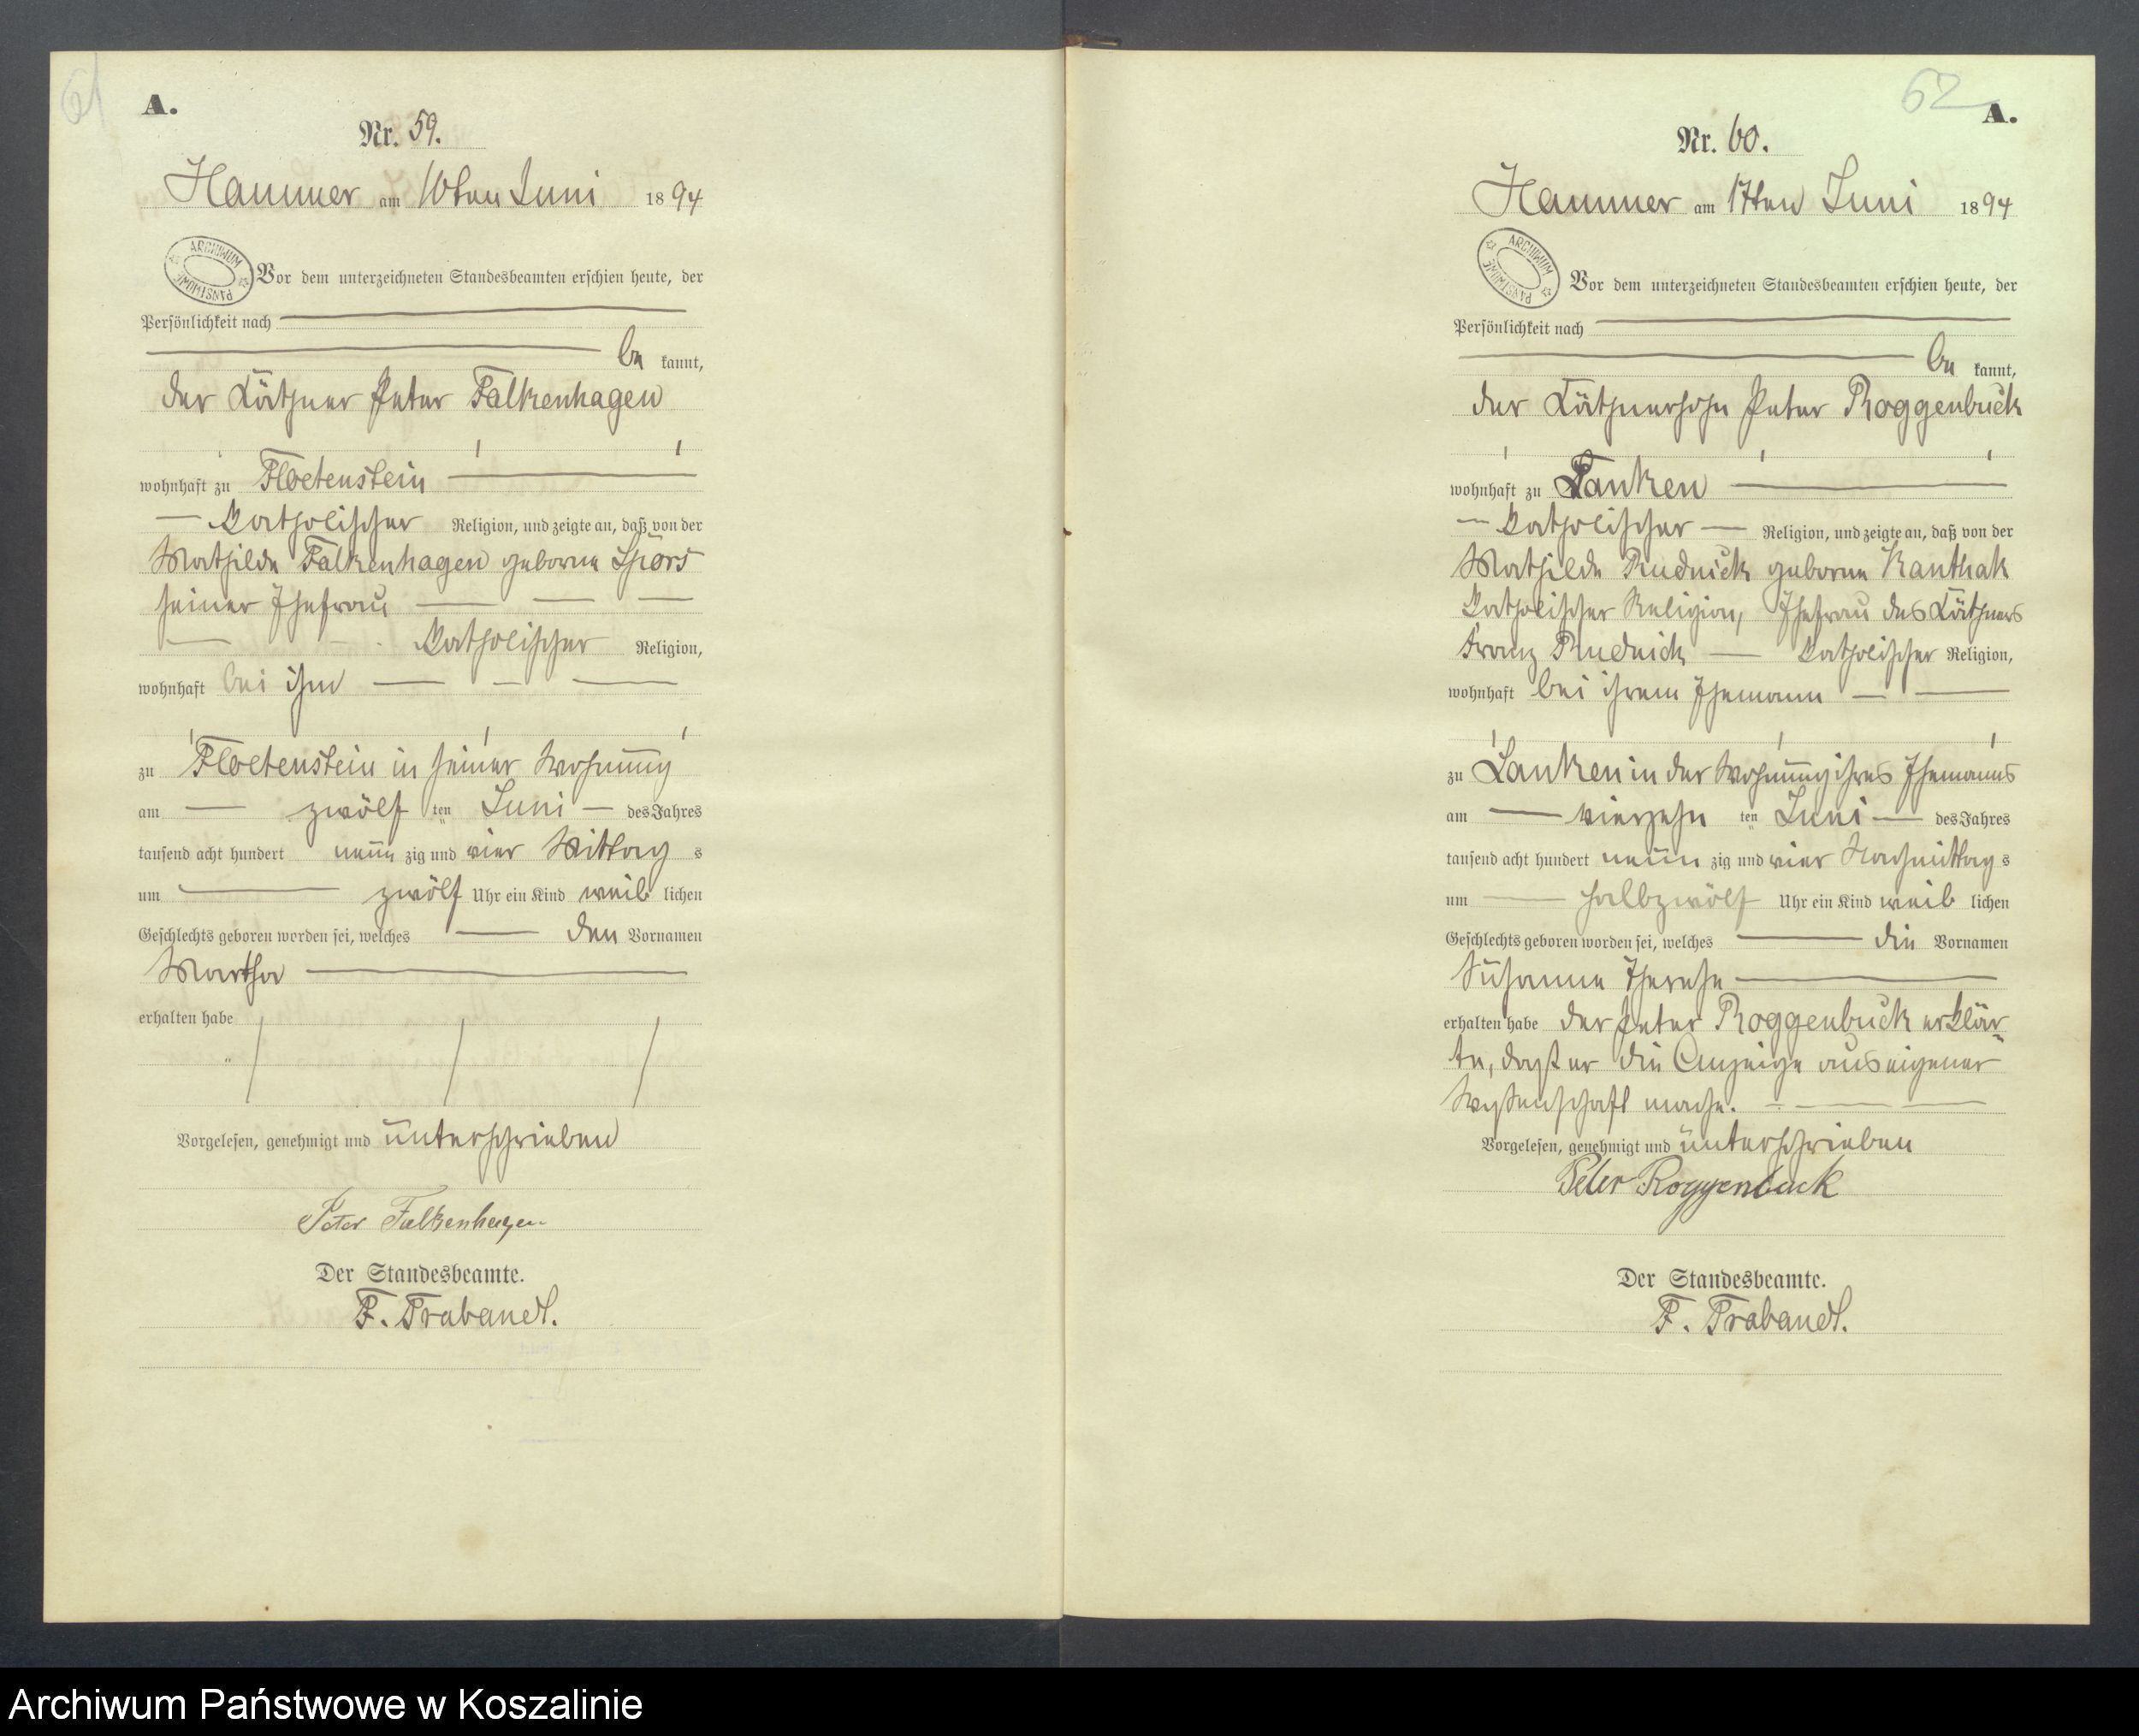 61
A.
Nr. 59.
Hammer am 16ten Juni 1894
ARCHIWUM PAŃSTWOWE
Vor dem unterzeichneten Standesbeamten erschien heute, der
Persönlichkeit nach
be kannt,
der Käthner Peter Falkenhagen
wohnhaft zu Floetenstein
katholischer Religion, und zeigte an, daß von der
Mathilde Falkenhagen geborne Spors
seiner Ehefrau
katholischer Religion,
wohnhaft bei ihm
zu Floetenstein in seiner Wohnung
am zwölf ten Juni des Jahres
tausend acht hundert neun zig und vier Mittag s
um zwölf Uhr ein Kind weib lichen
Geschlechts geboren worden sei, welches den Vornamen
Martha
erhalten habe
Vorgelesen, genehmigt und unterschrieben
Peter Falkenhagen
Der Standesbeamte.
F. Trabandt.
62
A.
Nr. 60.
Hammer am 17ten Juni 1894
ARCHIWUM PAŃSTWOWE
Vor dem unterzeichneten Standesbeamten erschien heute, der
Persönlichkeit nach
be kannt,
der Käthnersohn Peter Roggenbuck
wohnhaft zu Lanken
katholischer Religion, und zeigte an, daß von der
Mathilde Rudnick geborne Kanthak
katholischer Religion, Ehefrau des Käthners
Franz Rudnick katholischer Religion,
wohnhaft bei ihrem Ehemann
zu Lanken in der Wohnung ihres Ehemanns
am vierzehn ten Juni des Jahres
tausend acht hundert neun zig und vier Nachmittag s
um halbzwölf Uhr ein Kind weib lichen
Geschlechts geboren worden sei, welches die Vornamen
Susanne Therese
erhalten habe der Peter Roggenbuck erklär-
te, daß er die Anzeige aus eigener
Wissenschaft mache.
Vorgelesen, genehmigt und unterschrieben
Peter Roggenbuck
Der Standesbeamte.
F. Trabandt.
Archiwum Państwowe w Koszalinie